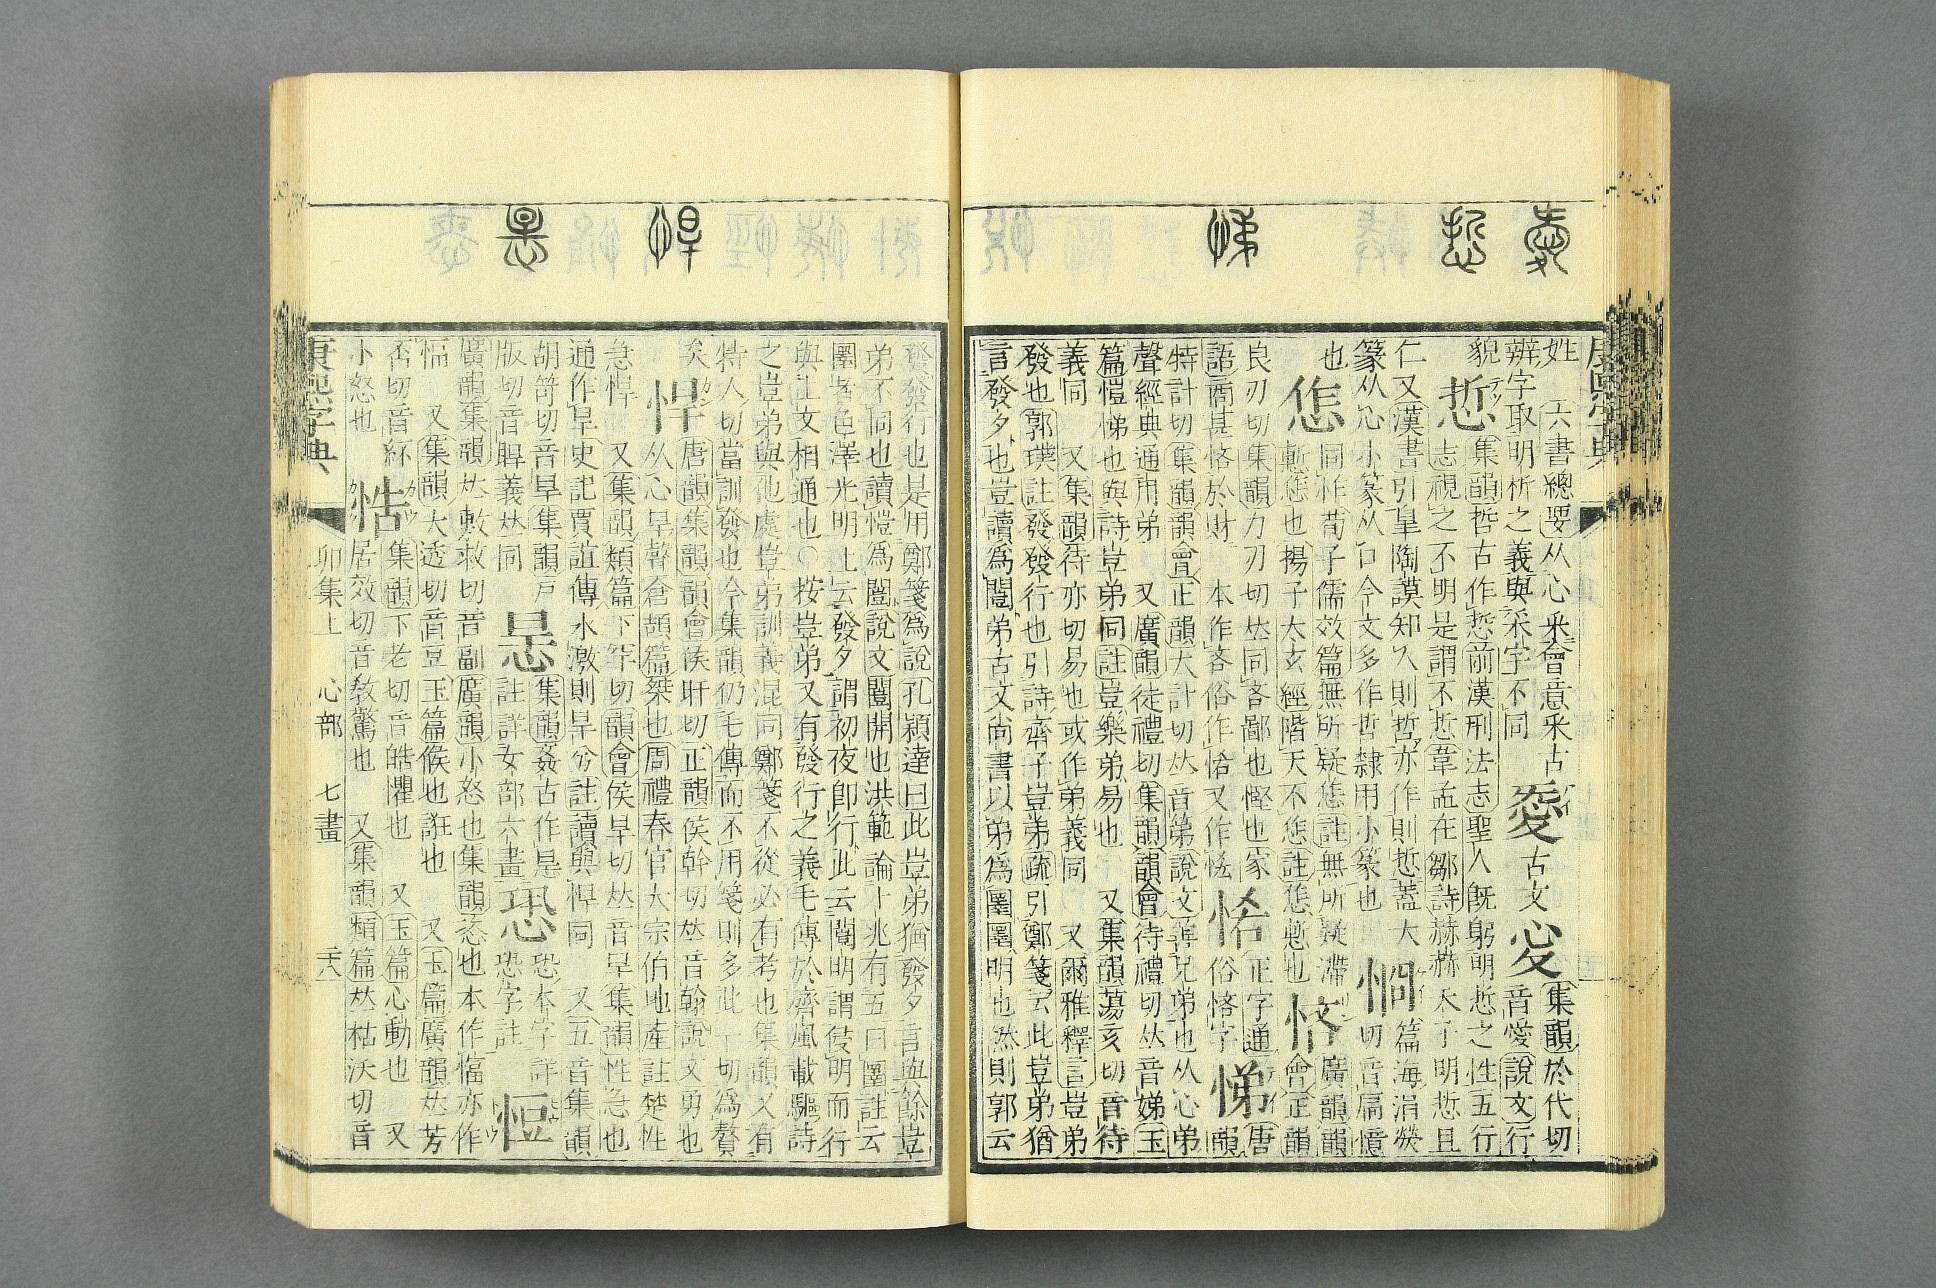 姓 六書總要从心釆會意釆古 㤅 古文 㤅 集韻於代切
辨字取明析之義與采字不同 音愛說文行
貌 悊 集韻哲古作悊前漢刑法志聖人旣躬明悊之性五行
志視之不明是謂不悊韋孟在鄒詩赫赫天子明悊且
仁又漢書引皐陶謨知人則哲亦作則悊蓋大 篇海涓熒
篆从心小篆从口今文多作哲隸用小篆也 切音扃憶
也 㤰 同怍荀子儒效篇無所疑㤰註無所疑滯 廣韻韻
慙㤰也揚子太玄經階天不㤰註㤰慙也 悋 會正韻
良刃切集韻力刃切𠀤同吝鄙也慳也家 正字通 唐
語商甚悋於財 本作吝俗作恡又作恡 悋 俗悋字 悌 韻
特計切集韻韻會正韻大計切𠀤音第說文善兄弟也从心弟
聲經典通用弟 又廣韻徒禮切集韻韻會待禮切𠀤音娣玉
篇愷悌也與詩豈弟同註豈樂弟易也 又集韻蕩亥切音待
義同 又集韻待亦切易也或作弟義同 又爾雅釋言豈弟
發也郭璞註發發行也引詩齊子豈弟疏引鄭箋云此豈弟猶
言發夕也豈讀爲闓弟古文尚書以弟爲圛圛明也然則郭云
發發行也是用鄭箋爲說孔穎達曰此豈弟猶發夕言與餘豈
弟不同也讀愷爲闓說文闓開也洪範論卜兆有五曰圛註云
圛者色澤光明上云發夕謂初夜卽行此云闓明謂侵明而行
與上文相通也○按豈弟又有發行之義毛傳於齊風載驅詩
之豈弟與他處豈弟訓義混同鄭箋不從必有考也集韻又有
特人切當訓發也今集韻仍毛傳而不用箋則多此一切爲贅
矣 悍 唐韻集韻韻會侯旰切正韻侯幹切𠀤音翰說文勇也
从心旱聲倉頡篇桀也周禮春官大宗伯地產註楚性
急悍 又集韻類篇下罕切韻會侯旱切𠀤音旱集韻性急也
通作旱史記賈誼傳水激則旱兮註讀與悍同 又五音集韻
胡笴切音旱集韻戸 㫒 集韻姦古作㫒 恐 恐本字詳
版切音睅義𠀤同 註詳女部六畫 恐字註 㤱
廣韻集韻𠀤敷救切音副廣韻小怒也集韻恣也本作愊亦作
愊 又集韻大透切音豆玉篇候也誑也 又玉篇廣韻𠀤芳
否切音紑 悎 集韻下老切音皓懼也 又玉篇心動也 又
小怒也 居效切音敎驚也 又集韻類篇𠀤枯沃切音
康熙字典 卯集上 心部 七畫